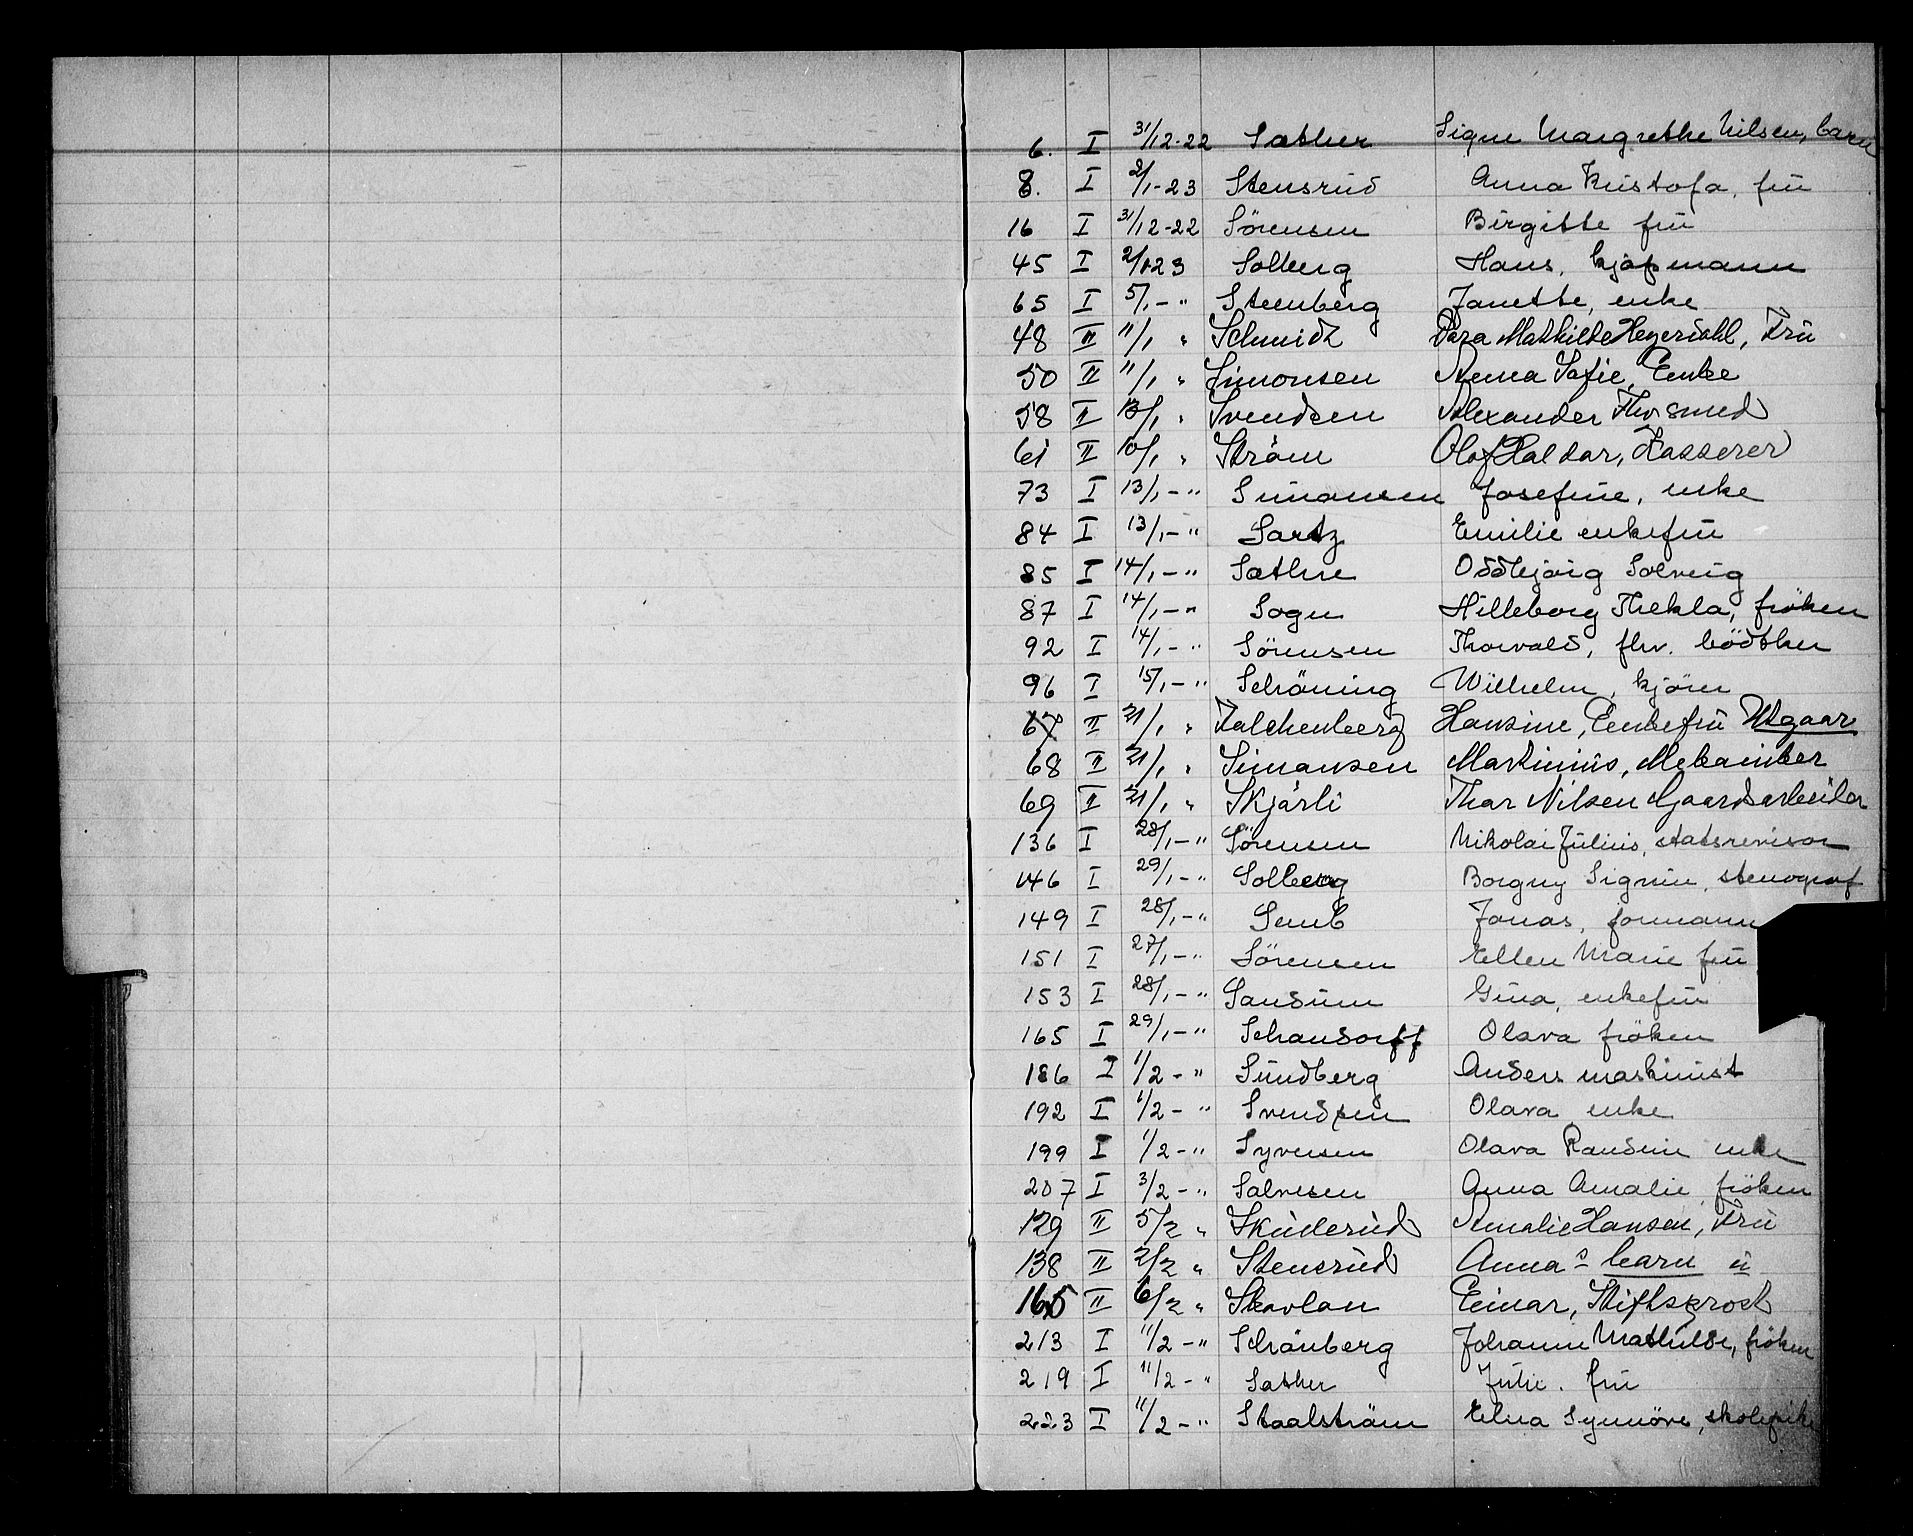 6. I 31/12-22 Sæther Signe Margrethe Nilsen, barn
8. I 2/1-23 Stensrud Anna Kristofa, frü
16 I 31/12-22 Sörensen Birgitte frü
45 I 2/1 23 Solberg Hans, kjøpmann
65 I 5/1-" Steenberg Janette, enke
48 II 11/1 " Schmidt Dora Mathilde Heyerdahl, Frü
50 II 11/1 " Simonsen Anna Sofie, Enke
58 II 13/1 " Svendsen Alexander Fhv. smed
61 II 10/1 " Ström Olaf Haldar, Kasserer
73 I 13/1-" Simonsen Josefine, enke
84 I 13/1-" Sartz Emilie enkefrü
85 I 14/1-" Sæthre Oddbjörg Solveig
87 I 14/1-" Sogn Hilleborg Thekla, fröken
92 I 14/1-" Sörensen Thorvald, fhv. bödtker
96 I 15/1-" Schöning Wilhelm, kjörer
67 II 21/1 " Falchenberg Hansine, Enkefrü Utgaar
68 II 21/1 " Simonsen Martinius, Mekaniker
69 II 21/1 " Skjärli Thor Nilsen Gaardsarbeider
136 I 28/1-" Sörensen Nikolai Julius, statsrevisor
146 I 29/1-" Solberg Borgny Signin, stenograf
149 I 28/1-" Semb Jonas, formann
151 I 27/1-" Sörensen Ellen Marie frü
153 I 28/1-" Sandum Gina, enkefrü
165 I 29/1-" Schandorff Olava fröken
186 I 1/2-" Sundberg Anders maskinist
192 I 1/2-" Svendsen Olava enke
199 I 1/2-" Syversen Olava Randine enke
207 I 3/2-" Salvesen Anna Amalie, fröken
129 II 5/2 " Skuderud Amalie Hansen, Frü
138 II 2/2 " Stensrud Anna s barn ü
165 II 6/2 " Skavlan Einar, Stiftsprost
213 I 11/2-" Schönberg Johanne Mathilde, fröken
219 I 11/2-" Sæther Julie. frü
223 I 11/2-" Staalström Elna Synnöve, skolepike